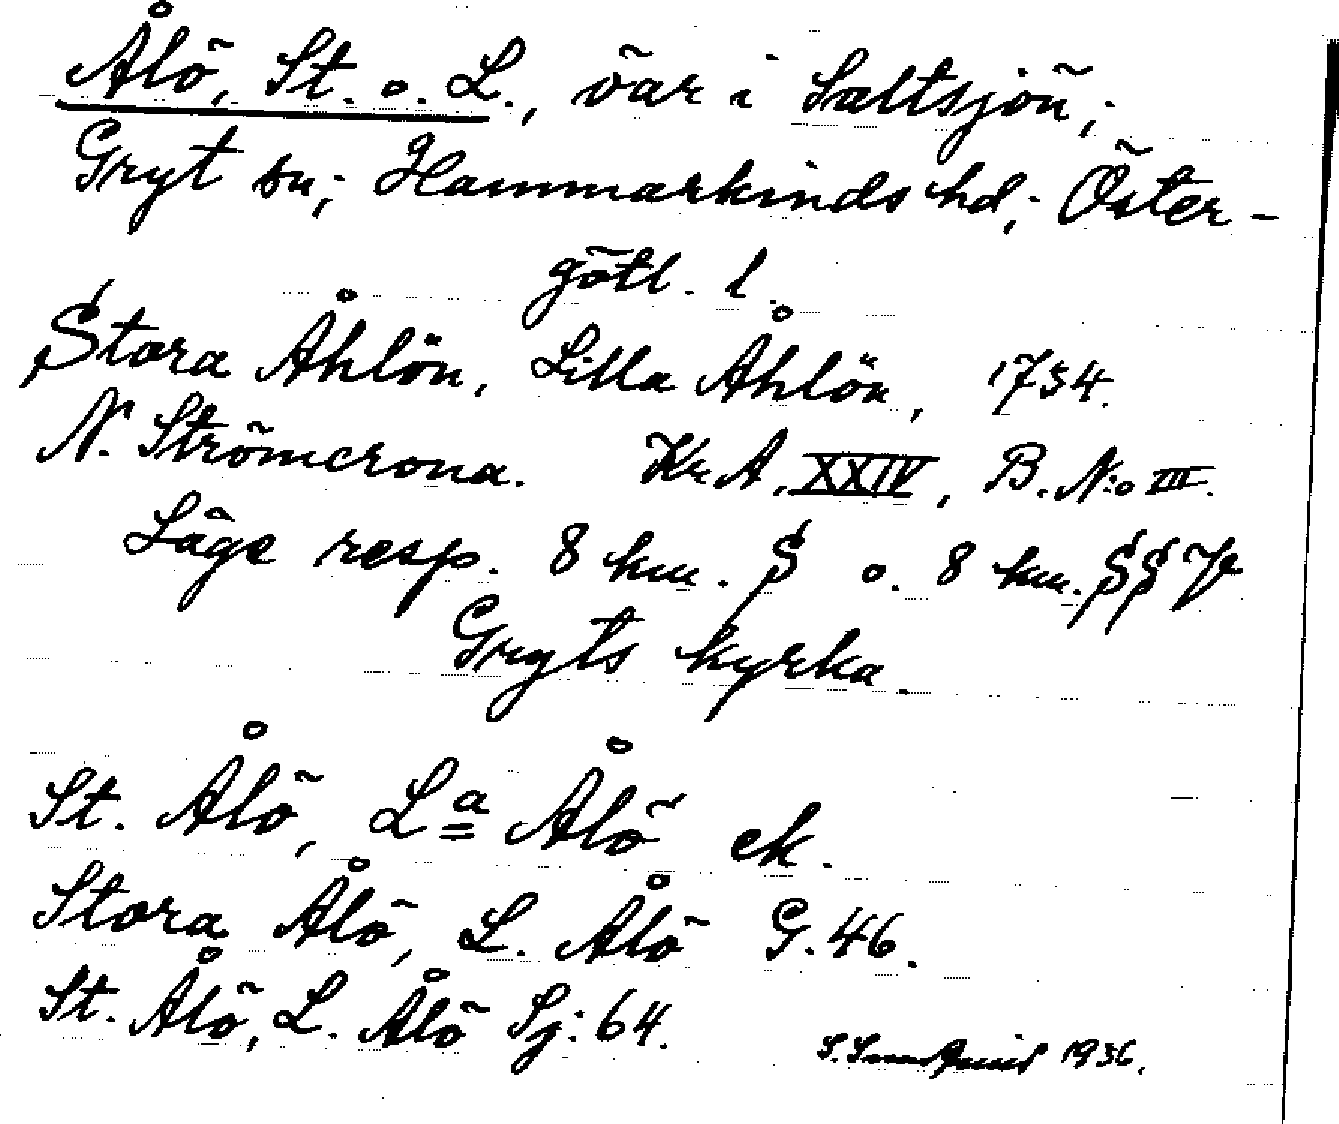 Ålö, St. o. L., öar i Saltsjön;
Gryt sn; Hammarkinds hd; Öster-
götl. l.
Stora Åhlön, Lilla Åhlön, 1734.
N. Strömcrona. Kr.A. XXIV, B. N:o III.
Läge resp. 8 km. S o. 8 km. SSV
Gryts kyrka.
St. Ålö, La Ålö ek.
Stora Ålö, L. Ålö G. 46.
St. Ålö, L. Ålö Sj: 64.
1936.